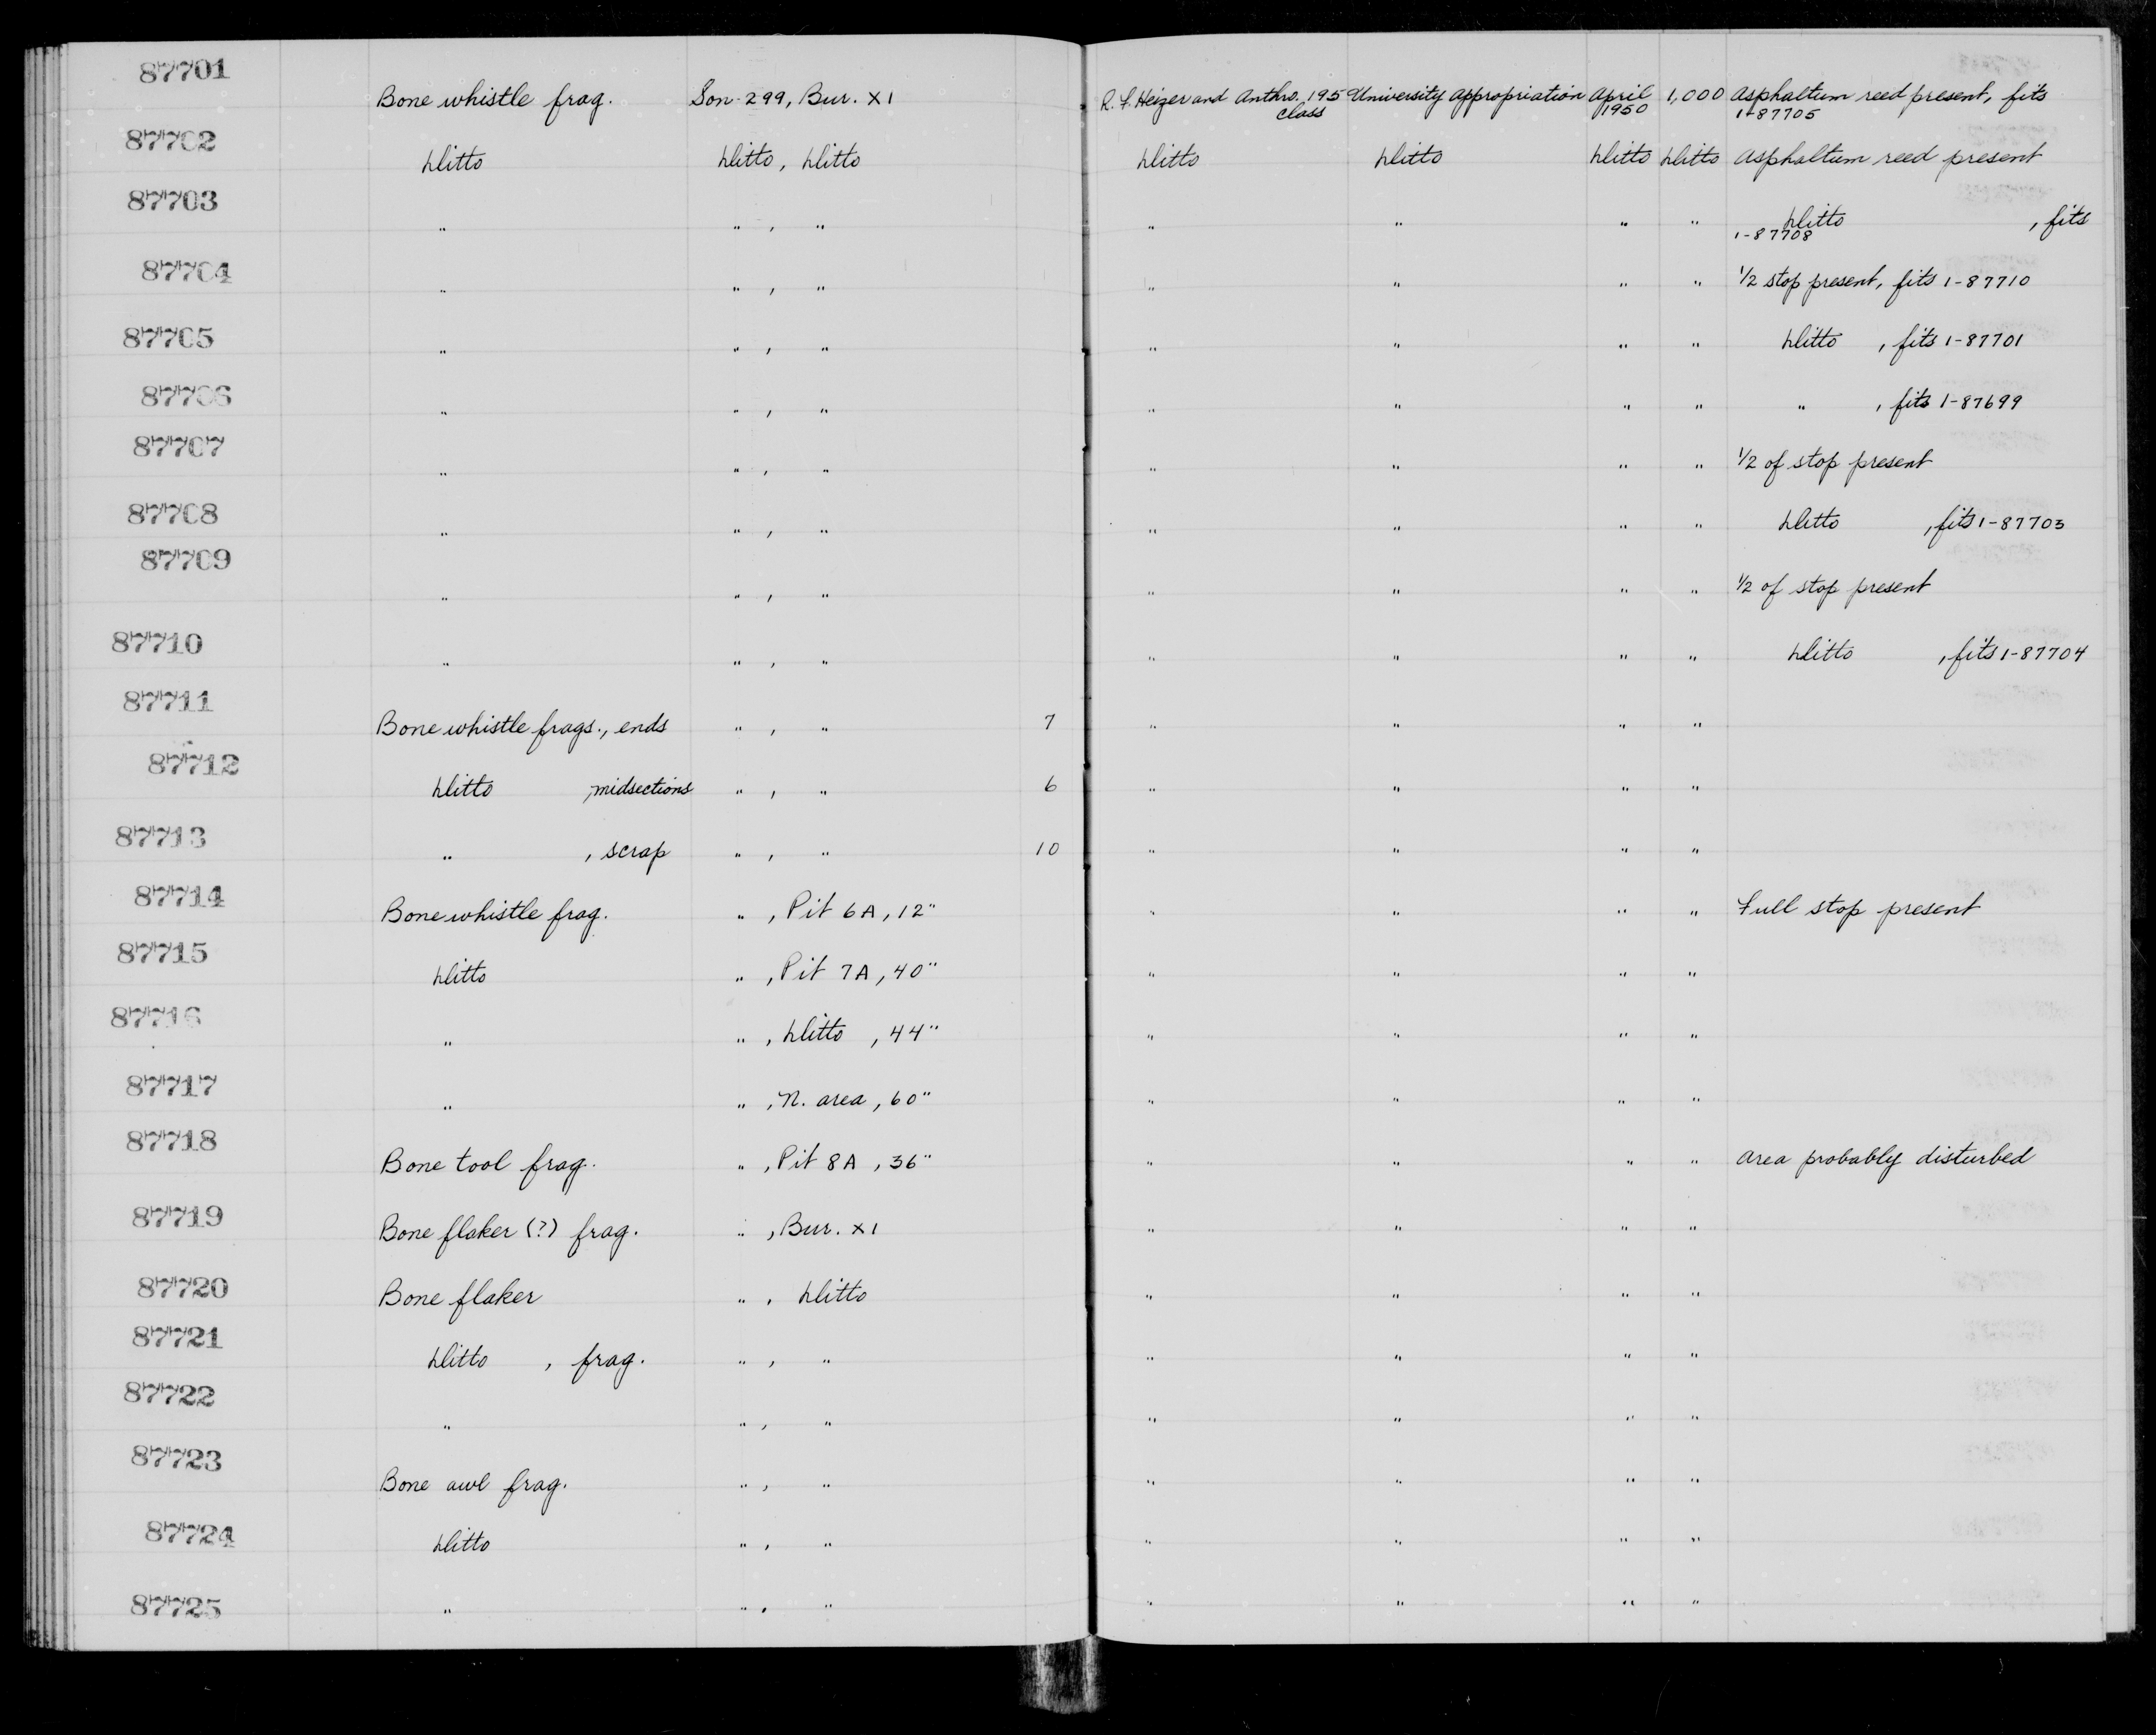 87701 Bone whistle frag. Son-299, Bur. X1 R. F. Heizer and Anthro. 195 University Appropriation April 1,000 Asphaltum reed present, fits
class 1950 1-87705
87702 Ditto Ditto, Ditto Ditto Ditto Ditto Ditto Asphaltum reed present
87703 " " , " " " " " Ditto , fits
1-87708
87704 " " , " " " " " 1/2 stop present, fits 1-87710
87705 " " , " " " " " Ditto , fits 1-87701
87706 " " , " " " " " " , fits 1-87699
87707 " " , " " " " " 1/2 of stop present
87708 " " , " " " " " Ditto , fits 1-87703
87709 " " , " " " " " 1/2 of stop present
87710 " " , " " " " " Ditto , fits 1-87704
87711 Bone whistle frags., ends " , " 7 " " " "
87712 Ditto , midsections " , " 6 " " " "
87713 " , scrap " , " 10 " " " "
87714 Bone whistle frag. " , Pit 6A, 12" " " " " Full stop present
87715 Ditto " , Pit 7A, 40" " " " "
87716 " " , Ditto , 44" " " " "
87717 " " , N. area, 60" " " " "
87718 Bone tool frag. " , Pit 8A, 36" " " " " Area probably disturbed
87719 Bone flaker (?) frag. " , Bur. X1 " " " "
87720 Bone flaker " , Ditto " " " "
87721 Ditto , frag. " , " " " " "
87722 " " , " " " " "
87723 Bone awl frag. " , " " " " "
87724 Ditto " , " " " " "
87725 " " , " " " " "